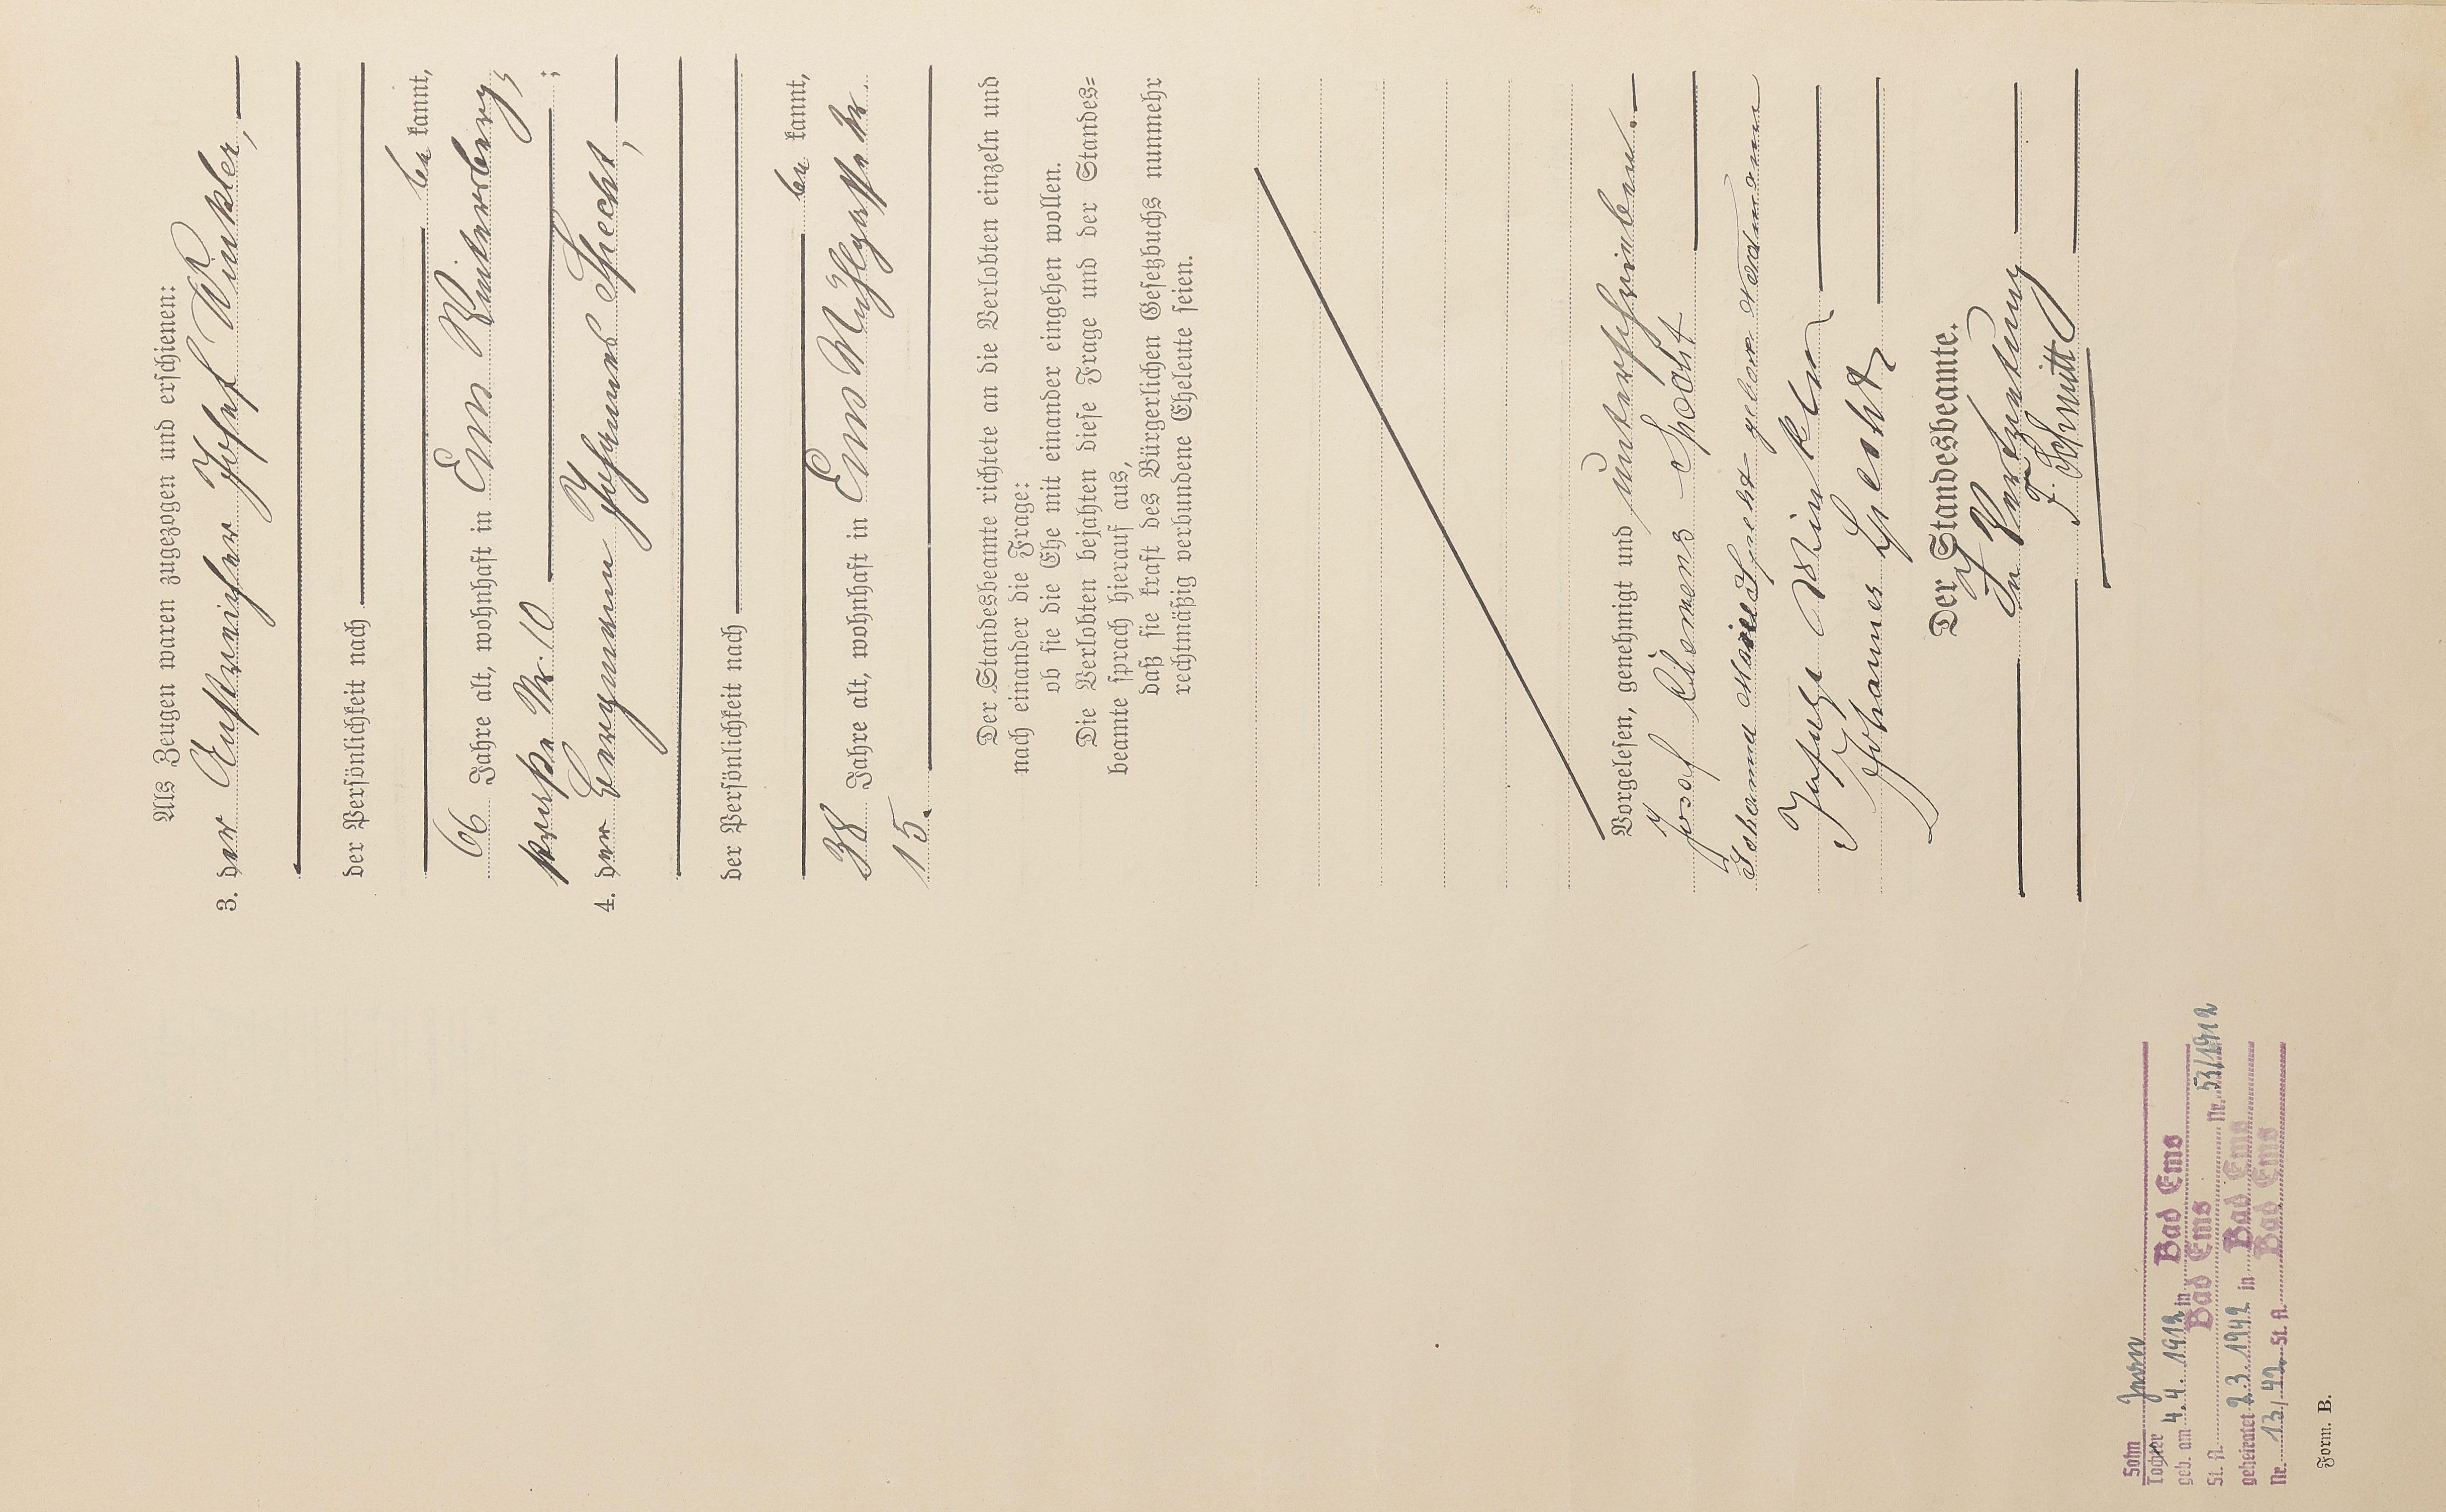 Als Zeugen waren zugezogen und erschienen:
3. der Aufseher Josef Winkler,
der Persönlichkeit nach
be kannt,
66 Jahre alt, wohnhaft in Ems Winterberg,
straße Nr. 10 ;
4. der Bergmann Johannes Specht,
der Persönlichkeit nach
be kannt,
38 Jahre alt, wohnhaft in Ems
15.
Der Standesbeamte richtete an die Verlobten einzeln und
nach einander die Frage:
ob sie die Ehe mit einander eingehen wollen.
Die Verlobten bejahten diese Frage und der Standes=
beamte sprach hierauf aus,
daß sie kraft des Bürgerlichen Gesetzbuchs nunmehr
rechtmäßig verbundene Eheleute seien.
Vorgelesen, genehmigt und unterschrieben.
Josef Klemens Specht
Johanna Maria Specht geborne
Josef Winkler
Johannes Specht
Der Standesbeamte.
In Vertretung
F. Schmitt
Sohn
Tochter
geb. am 4.4.1912 in Bad Ems
St. A. Bad Ems Nr. 53/1912
geheiratet 2.3.1942 in Bad Ems
Nr. 13/42 St. A. Bad Ems
Form. B.